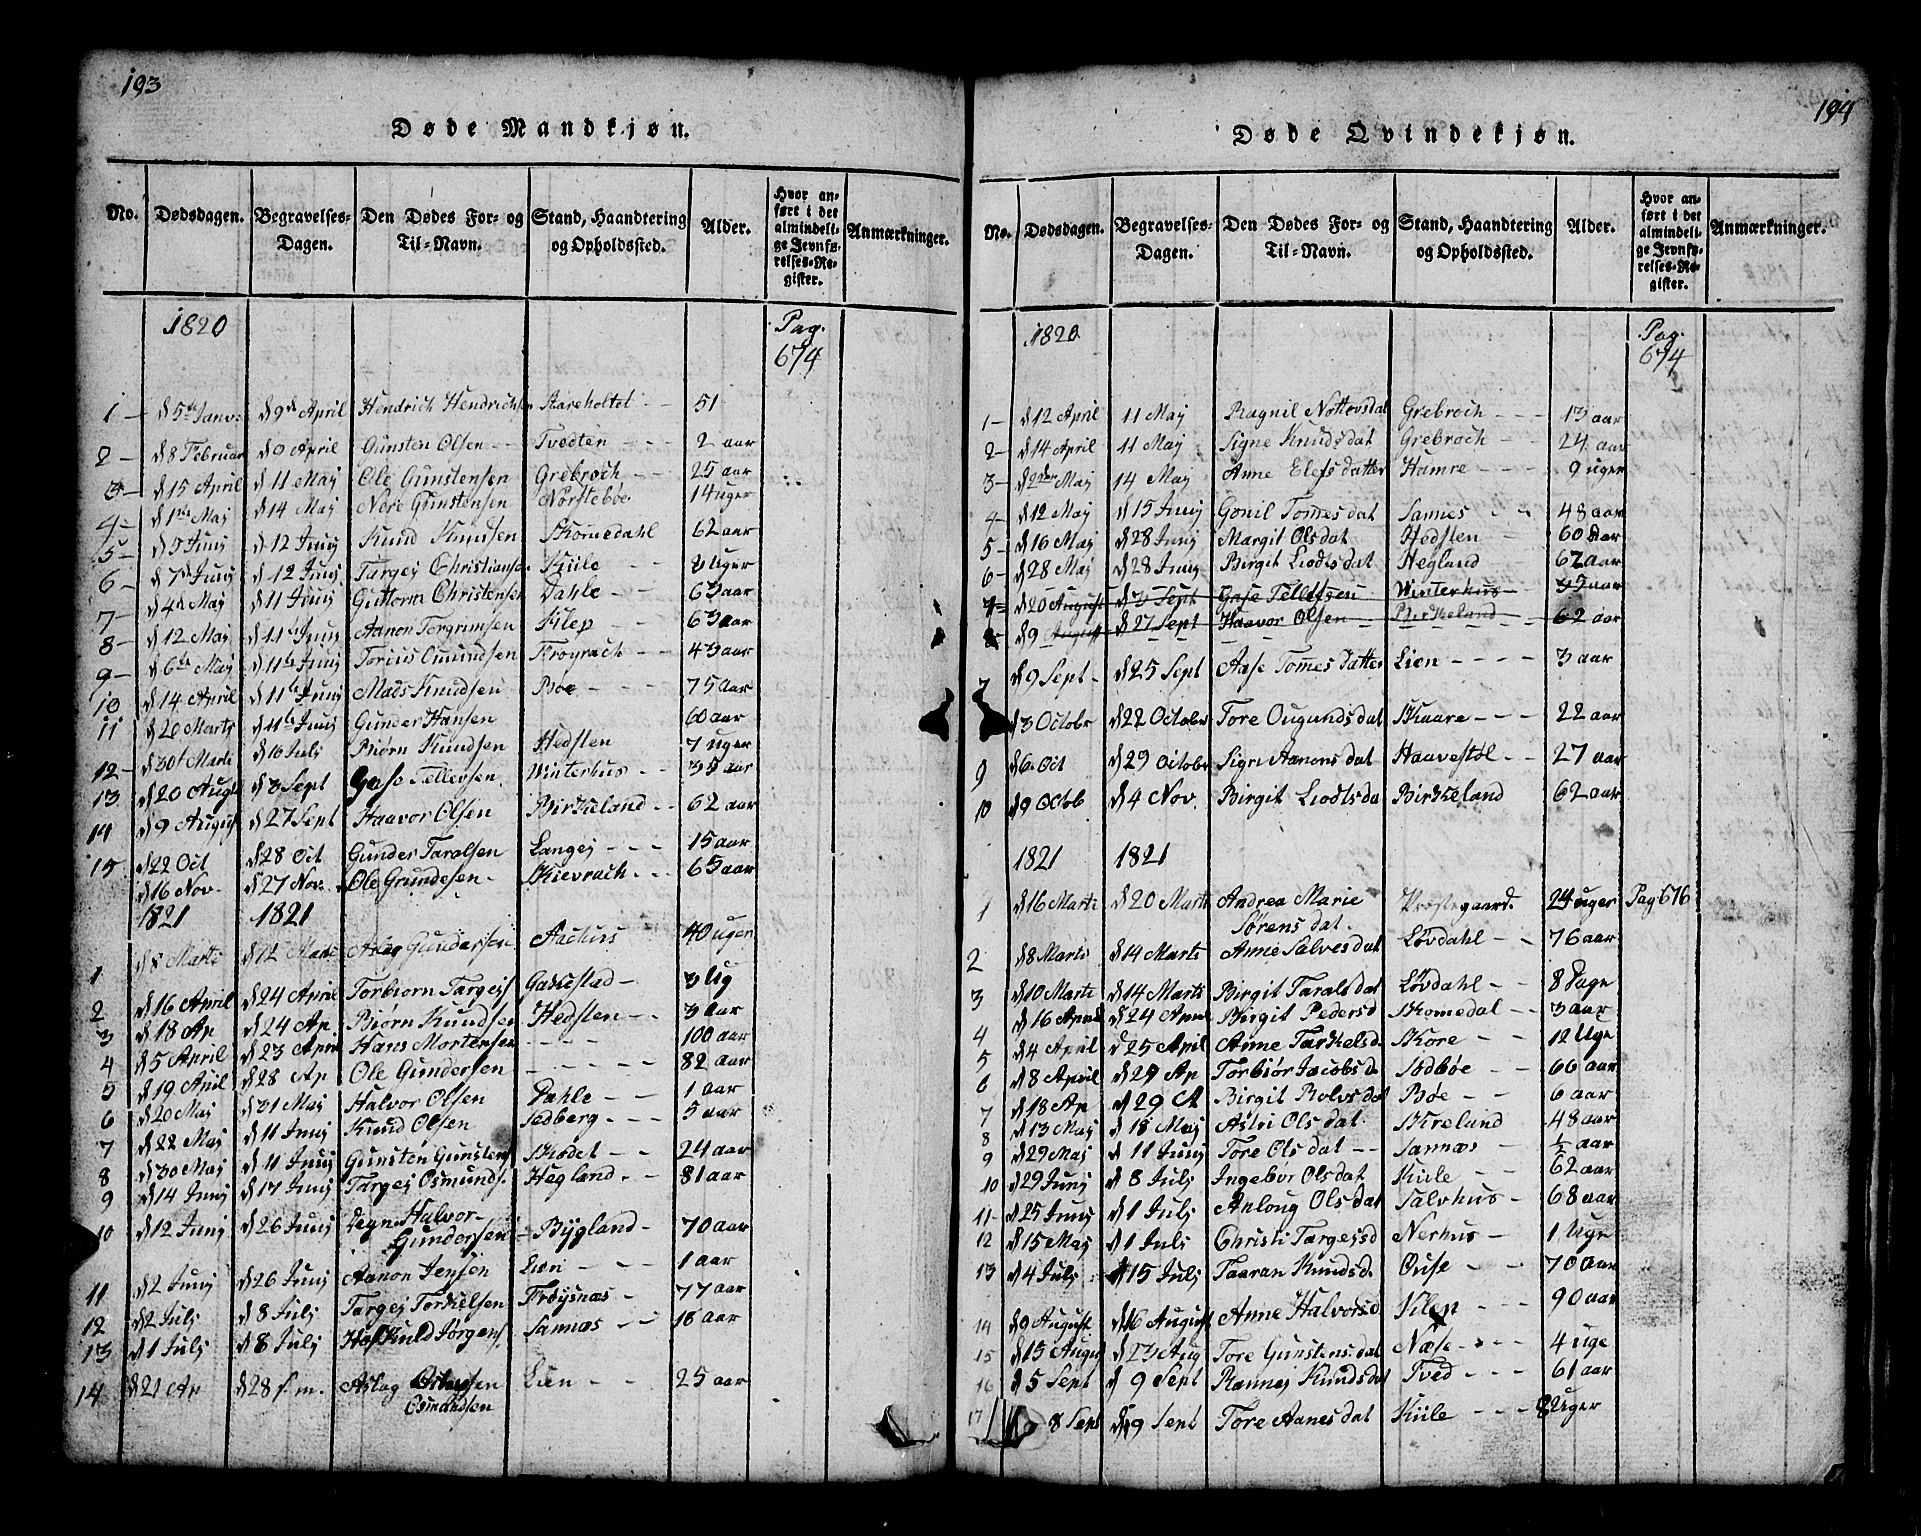 193
Døde Mandkjøn.
No. Dødsdagen. Begravelses-Dagen. Den Dødes For- og Til-Navn. Stand, Haandtering og Opholdssted. Alder. Hvor anført i det almindelige Jevnførelses-Register. Anmærkninger.
1820 Pag. 674
1 d 5te Janv. d 9de April Hendrich Hendrichsen Aareholtet 51
2 d 8 Februar d 9 April Gunsten Olsen Tvedten 2 aar
3 d 15 April d 11 Maj Ole Gunstensen Grebroch 25 aar
4 d 1ste Maj d 14 Maj Nere Gunstensen Norstebøe 14 uger
5 d 5 Junij d 12 Junij Knud Knudsen Skomedahl 62 aar
6 d 7de Junij d 12 Junij Targej Christiansen Kiile 8 uger
7 d 4de Maj d 11 Junij Guttorm Christensen Dahle 63 aar
8 d 12 Maj d 11te Junij Aanon Torgrimsen Kilep 63 aar
9 d 6te Maj d 11te Junij Torius Omundsen Frøyrach 43 aar
10 d 14 April d 11te Junij Mads Knudsen Bøe 75 Aar
11 d 20 Marts d 11te Junij Gunder Hansen 60 aar
12 d 30t Marts d 16 Julj Biørn Knudsen Hedsten 7 uger
13 d 20 Aug d 3 Sept Gase Tellevsen Winterhus 35 aar
14 d 9 August d 27 Sept Haavor Olsen Birkeland 62 aar
15 d 22 Oct d 28 Oct Gunder Taralsen Langej 15 aar
d 16 Nov. d 27 Nov. Ole Grundesen Kievrach 65 aar
1821 1821
1 d 8 Marti d 12 Marti Aslag Gundersen Aachus 40 uger
2 d 16 April d 24 April Torbiørn Targejs Gakkestad 3 Ug
3 d 18 Ap d 24 Ap. Biørn Knudsen Hedsten 3 aar
4 d 5 April d 23 April Hans Mortensen 100 aar
5 d 19 April d 28 Ap Ole Gundersen 82 aar
6 d 20 Maj d 31 Maj Halvor Olsen Dahle 1 aar
7 d 22 Maj d 11 Junij Knud Olsen Sedberg 5 aar
8 d 30 Maj d 11 Junij Gunsten Gunstens Skodet 24 aar
9 d 14 Junij d 17 Junij Targej Osmunds. Hegland 81 aar
10 d 12 Junij d 26 Junij Degn Halvor Gundersen Bygland 70 aar
11 d 2 Junij d 26 Junij Aanon Jensen Lien 1 aar
12 d 2 Julj d 8 Julj Targej Torkelsen Frøysnæs 77 aar
13 d 1 Julj d 8 Julj Hofkuld Jørgens. Sannæs 18 aar
14 d 21 Ap d 28 s.m. Aslag Osmundsen Lien 25 aar
194
Døde Qvindekjøn.
No. Dødsdagen. Begravelses-Dagen. Den Dødes For- og Til-Navn. Stand, Haandtering og Opholdssted. Alder. Hvor anført i det almindelige Jevnførelses-Register. Anmærkninger.
1820 Pag. 674
1 d 12 April 11 Maj Ragnil Nottovsdat Grebroch 13 aar
2 d 14 April 11 Maj Signe Knudsdat Grebroch 24 aar
3 d 2den Maj 14 Maj Anne Elefsdatter Hamre 9 uger
4 d 12 Maj d 15 Junij Gonil Tomesdat Sannes 48 aar
5 d 16 Maj d 28 Junij Margit Olsdat Hedsten 60 aar
6 d 28 Maj d 28 Junij Birgit Liodtsdat Hegland 62 aar
7 d 20 August d 3 Sept Gase Tellefsen Winterhus 35 aar
8 d 9 August d 27 Sept Haavor Olsen Birkeland 62 aar
7 d 9 Sept d 25 Sept Aase Tomesdatter Lien 3 aar
d 3 Octobr d 22 Octobr Tore Ougundsdat Skaare 22 aar
9 d 6 Oct d 29 Octobr Signe Aanonsdat Haavestøl 27 aar
10 d 9 Octob d 4 Nov. Birgit Liodtsda Birkeland 62 aar
1821 1821
1 d 16 Marti d 20 Marti Andrea Marie Sørensdat. Præstegaard. 24 uger Pag 676
2 d 8 Marti d 14 Marti Anne Salvesdat Løvdahl 76 aar
3 d 10 Marti d 14 Marti Birgit Taralsdat Løvdahl 8 Dage
4 d 16 April d 24 April Birgit Pedersd Skomedal 3 aar
5 d 4 April d 25 April Anne Tarkelsd. Skore 12 Uge
6 d 8 April d 29 Ap Torbiør Jacobsd. Sodbøe 66 aar
7 d 18 Ap d 29 A Birgit Rolvsdat Bøe 6 aar
8 d 13 Maj d 18 Maj Astri Olsdat. Skreland 48 aar
9 d 29 Maj d 11 Junij Tore Olsdat Sannæs ½ aar
10 d 29 Junij d 8 Julj Ingebør Olsdat Kiile 62 aar
11 d 25 Junij d 1 Julj Anloug Olsdat Salvhus 68 aar
12 d 15 Maj d 1 Julj Christi Targejsd Nerhus 1 Uge
13 d 4 Julj d 15 Julj Taaran Knudsd. Ouse 70 aar
14 d 9 August d 16 August Anne Halvorsd Kilen 90 aar
15 d 15 August d 23 Aug Tore Gunstensdat Næse 4 uge
16 d 5 Sept d 9 Sept Rannej Knudsdat Tved 61 aar
17 d 8 Sept d 9 Sept Tore Aanesdat Kiile 8 Uger